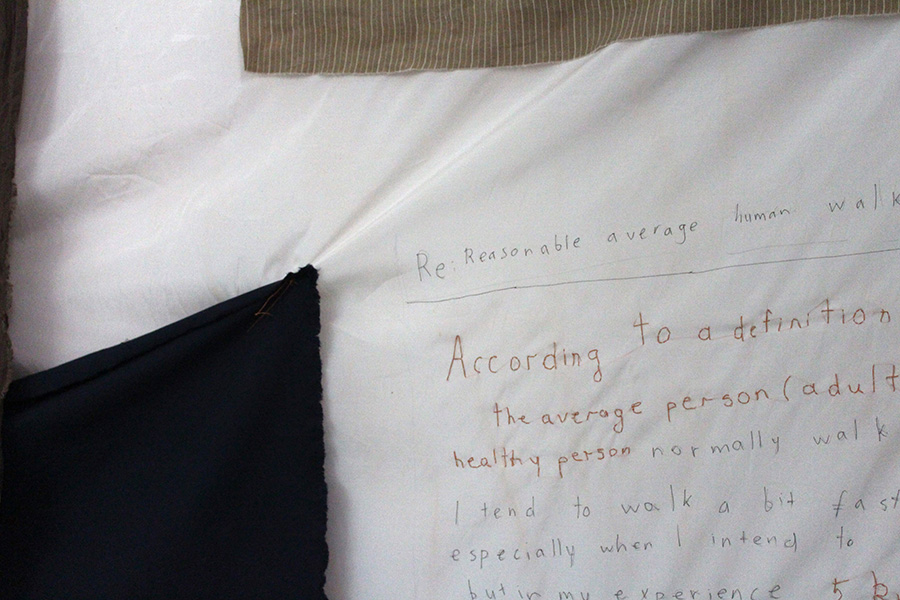 Re: Reasonable average human walk
According to a definition
the average person (adult
healthy person normally walk
I tend to walk a bit fast
especially when I intend to
but in my experience 5